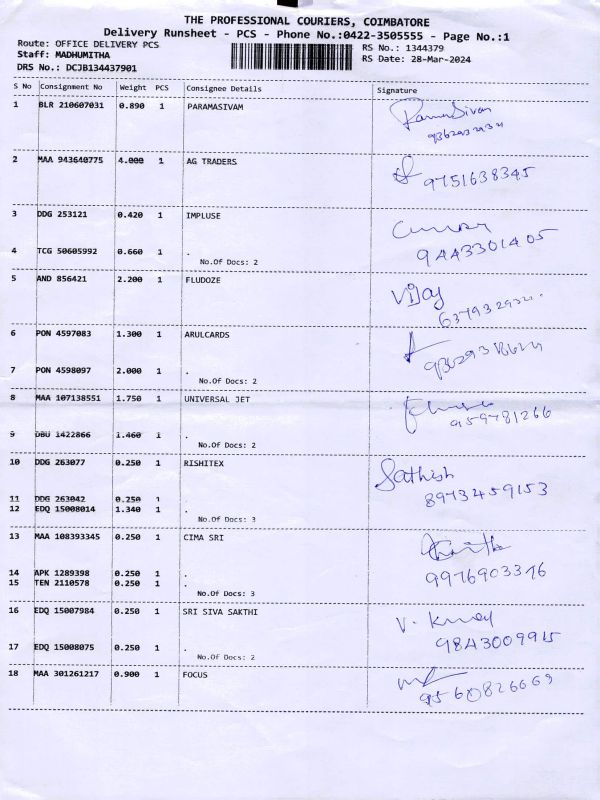 THE PROFESSIONAL COURIERS, COIMBATORE
Delivery Runsheet - PCS - Phone No.:0422-3505555 - Page No.:1
Route: OFFICE DELIVERY PCS
Staff: MADHUMITHA
DRS No.: DCJB134437901
RS No.: 1344379
RS Date: 28-Mar-2024
S No Consignment No Weight PCS Consignee Details Signature
1 BLR 210607031 0.890 1 PARAMASIVAM
2 MAA 943640775 4.000 1 AG TRADERS
9751638345
3 DDG 253121 0.420 1 IMPLUSE
9443301405
4 TCG 50605992 0.660 1 .
No.Of Docs: 2
5 AND 856421 2.200 1 FLUDOZE Vijay
6 PON 4597083 1.300 1 ARULCARDS
7 PON 4598097 2.000 1 .
No.Of Docs: 2
8 MAA 107138551 1.750 1 UNIVERSAL JET
959781266
9 DBU 1422866 1.460 1 .
No.Of Docs: 2
10 DDG 263077 0.250 1 RISHITEX Sathish
8973459153
11 DDG 263042 0.250 1
12 EDQ 15008014 1.340 1 .
No.Of Docs: 3
13 MAA 108393345 0.250 1 CIMA SRI
14 APK 1289398 0.250 1 .
9976903376
15 TEN 2110578 0.250 1 .
No.Of Docs: 3
16 EDQ 15007984 0.250 1 SRI SIVA SAKTHI
9843009915
17 EDQ 15008075 0.250 1 .
No.Of Docs: 2
18 MAA 301261217 0.900 1 FOCUS
9560826669